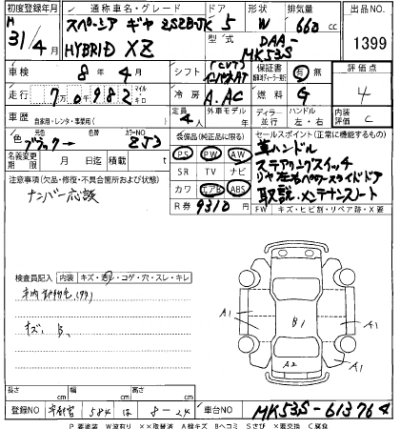 初度登録年月 通称車名・グレード ドア 形状 排気量 出品NO.
H 31/4月 スペーシア ギヤ 2SZBJK 5 W 660 cc 1399
HYBRID XZ 型式 DAA-MK53S
車検 8年4月 シフト (CVT) インパネAT 保証書 有・無 評価点
走行 70982 マイル キロ 冷房 A.AC 燃料 G 4
車歴 自家用・レンタ・事業用( ) 定員 4人 外車モデル年 ディーラー 並行 ハンドル 左・右 内装評価 C
色 元色 ブラック→ カラーNO ZJ3 装備品(純正品に限る) セールスポイント(正常に機能するもの)
名義変更期限 月 日迄 積載 t PS PW AW 革ハンドル
注意事項(欠品・修復・不具合箇所および状態) SR TV ナビ ステアリングスイッチ
ナンバー応談 カワ エアB ABS リヤ左右パワースライドドア
R券 9310 円 取説、メンテナンスノート
FW キズ・ヒビ割・リペア跡・X要
検査員記入 内装 キズ・汚レ・コゲ・穴・スレ・キレ
A1 B1 A1 A1 A2
長さ cm 幅 cm 高さ cm
登録NO 宇都宮 584 は 8-24 車台NO MK53S-613764
P 要塗装 W波有り ××取替済 A線キズ Bヘコミ Sさび X要交換 C腐食